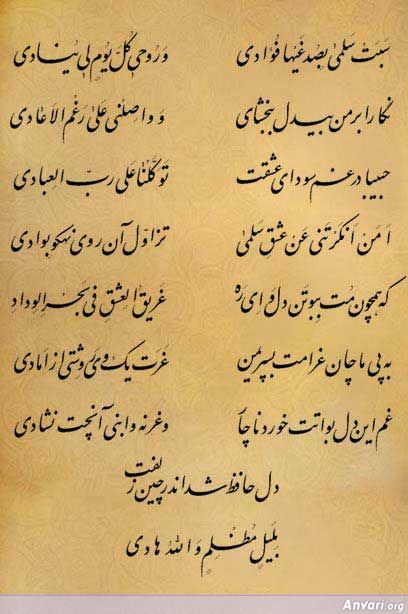 سَبَتْ سَلْمىٰ بِصُدْغَیْها فُؤادی وَ رُوحی کُلَّ یَوْمٍ لی یُنادی
نگارا بر من بیدل ببخشای وَ واصِلْنی عَلیٰ رَغْمِ الاَعادی
حبیبا در غم سودای عشقت تَوَکَّلْنا عَلیٰ رَبِّ العِبادی
اَمَنْ اَنْکَرْتَنی عَنْ عِشْقِ سَلْمیٰ تزاول آن روی نهکو بوادی
که همچون مت ببوتن دل و ای ره غَریقُ العِشْقِ فی بَحْرِ الوِدادِ
به پی ماچان غرامت بسپریمن غرت یک وی روشتی از امادی
غم این دل بواتت خورد ناچار وغر نه وابنی آنچت نشادی
دل حافظ شد اندر چین زلفت
بِلَیْلٍ مُظْلِمٍ وَ اللهُ هادی
Anvari.org